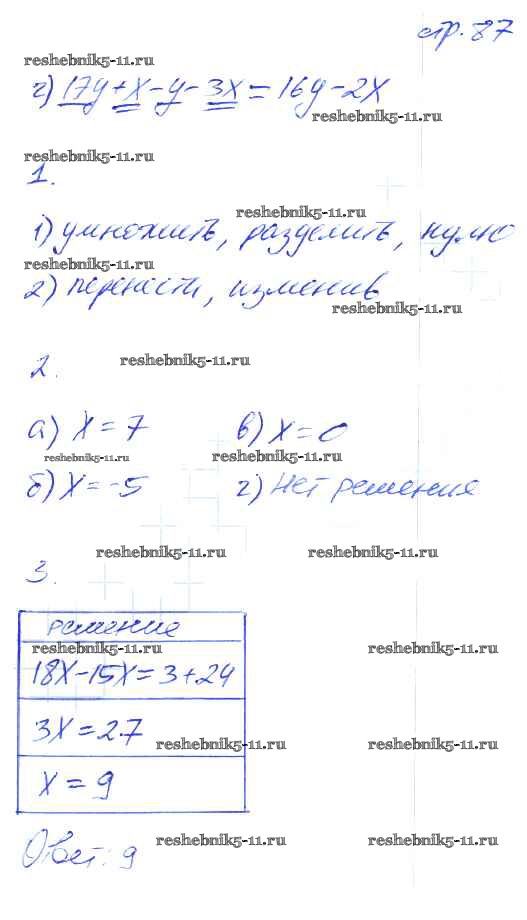 стр. 87
reshebnik5-11.ru
г) 17y+x-y-3x=16y-2x
reshebnik5-11.ru
reshebnik5-11.ru
1.
reshebnik5-11.ru
1) умножить, разделить, нулю
reshebnik5-11.ru
2) перенести, изменив
reshebnik5-11.ru
2.
а) x=7 в) x=0
reshebnik5-11.ru reshebnik5-11.ru
б) x=-5 г) Нет решения
reshebnik5-11.ru reshebnik5-11.ru
3.
решение
reshebnik5-11.ru reshebnik5-11.ru
18x-15x=3+24
3x=27
reshebnik5-11.ru reshebnik5-11.ru
x=9
reshebnik5-11.ru reshebnik5-11.ru
Ответ: 9